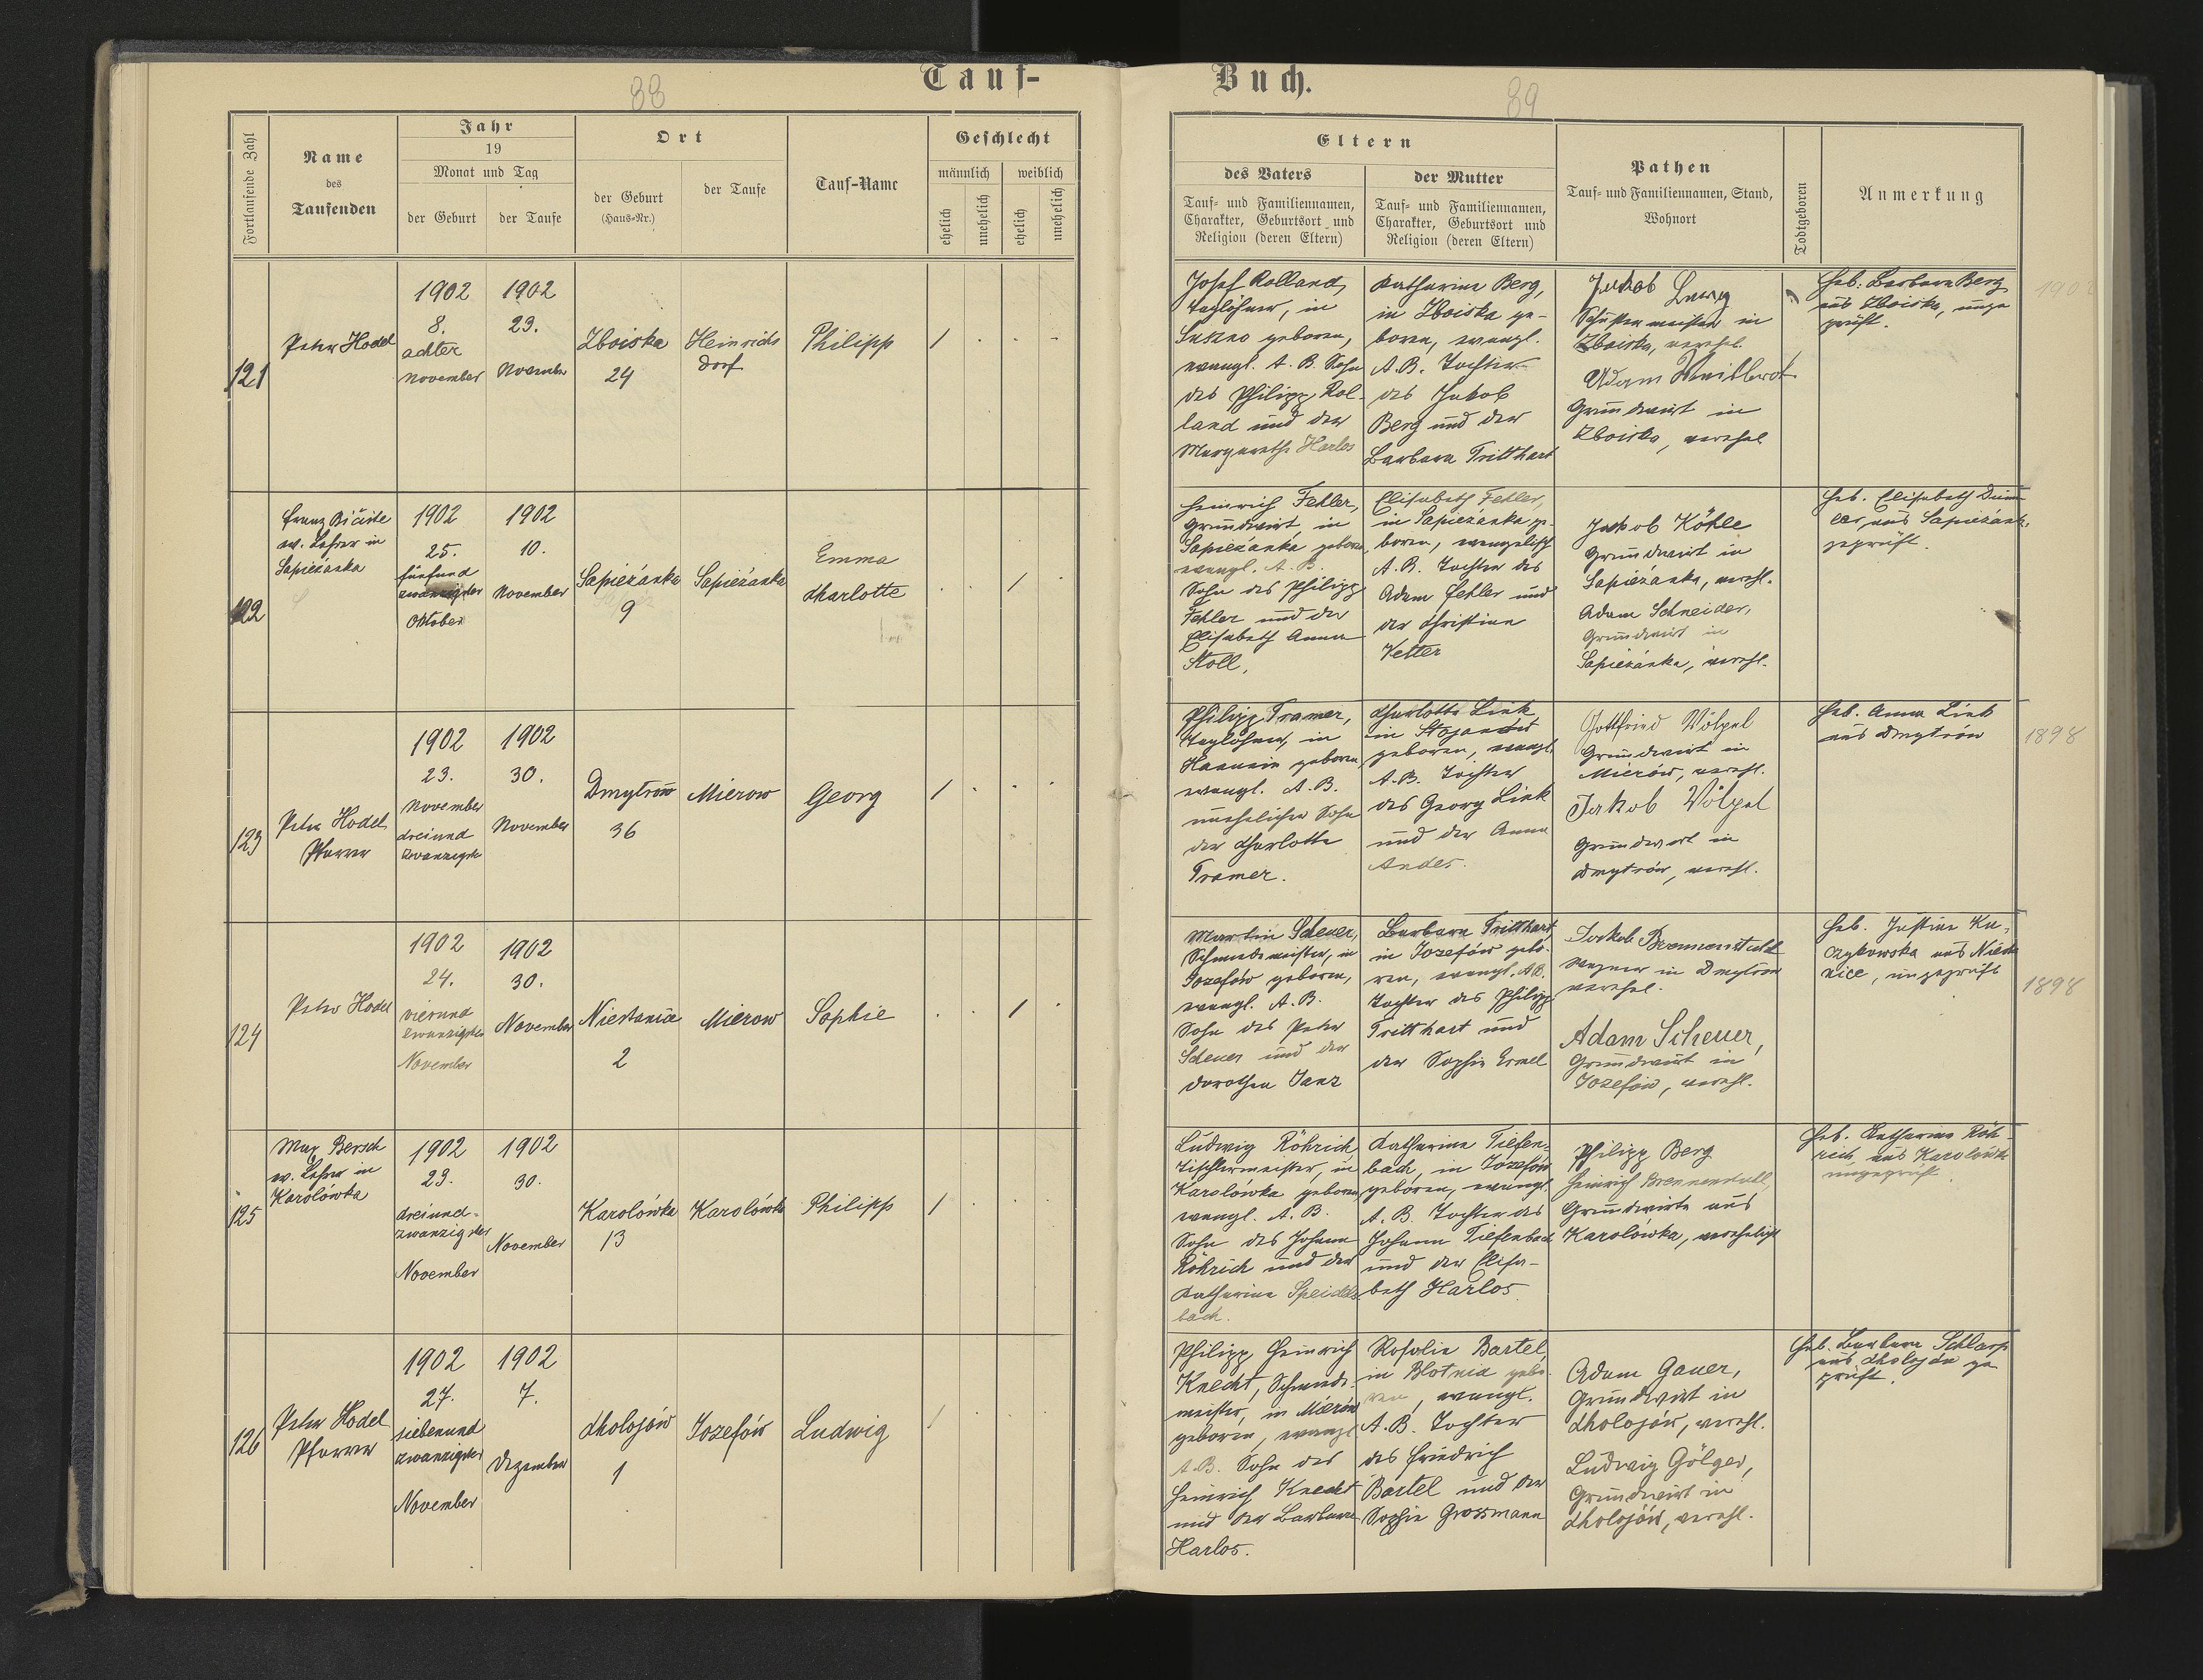 88
Tauf-
Fortlaufende Zahl
Name
des
Taufenden
Jahr
19
Monat und Tag
der Geburt
der Taufe
Ort
der Geburt
(Haus-Nr.)
der Taufe
Tauf-Name
Geschlecht
männlich
weiblich
ehelich
unehelich
ehelich
unehelich
121
Peter Hodel
1902
8.
achter
November
1902
23.
November
Zboiska
24
Heinrichs
dorf
Philipp
1
122
Franz
ev. Lehrer in
Sapieżanka
1902
25.
fünfund
zwanzigster
Oktober
1902
10.
November
Sapieżanka
9
Sapieżanka
Emma
Charlotte
1
123
Peter Hodel
Pfarrer
1902
23.
November
dreiund
zwanzigste
1902
30.
November
Dmytrów
36
Mierow
Georg
1
124
Peter Hodel
1902
24.
vierund
zwanzigster
November
1902
30.
November
2
Mierow
Sophie
1
125
Max Bersch
ev. Lehrer in
Karolówka
1902
23.
dreiund-
zwanzigster
November
1902
30.
November
Karolówka
13
Karolówka
Philipp
1
126
Peter Hodel
Pfarrer
1902
27.
siebenund
zwanzigster
November
1902
7.
Dezember
Cholojów
1
Józefów
Ludwig
1
Buch.
89
Eltern
des Vaters
Tauf- und Familiennamen,
Charakter, Geburtsort und
Religion (deren Eltern)
der Mutter
Tauf- und Familiennamen,
Charakter, Geburtsort und
Religion (deren Eltern)
Pathen
Tauf- und Familiennamen, Stand,
Wohnort
Todtgeboren
Anmerkung
Josef Rolland,
Taglöhner, in
geboren,
evangl. A. B. Sohn
des Philipp Rol-
land und der
Margarethe Harlos
Katharina Berg,
in Zboiska ge-
boren, evangl.
A.B. Tochter
des Jakob
Berg und der
Barbara Tritthart
Jakob
Schustermeister in
Zboiska, verehel.
Adam
Grundwirt in
Zboiska, verehel
Heb. Barbara Berg
aus Zboiska, unge
prüft.
Heinrich Fehler,
Grundwirt in
Sapieżanka geboren,
evangl. A. B.
Sohn des Philipp
Fehler und der
Elisabeth Anna
Stoll,
Elisabeth Fehler,
in Sapieżanka ge-
boren, evangelisch
A.B. Tochter des
Adam Fehler und
der Christine
Ketter
Jakob Köhle
Grundwirt in
Sapieżanka, verehl.
Adam Schneider,
Grundwirt in
Sapieżanka, verehl.
Heb. Elisabeth
aus Sapieżank.
geprüft.
Philipp Tramer,
Taglöhner, in
Hanunin geboren,
evangl. A.B.
unehelicher Sohn
der Charlotte
Tramer.
Charlotte Link
in
geboren, evangl.
A.B. Tochter
des Georg Link
und der Anna
Andes.
Gottfried Völpel
Grundwirt in
Mierów, verehl.
Jakob Völpel
Grundwirt in
Dmytrów, verehl.
Heb. Anna Link
aus Dmytrów
1898
Martin Scheuer,
Schmiedemeister, in
Józefów geboren,
evangl. A.B.
Sohn des Peter
Scheuer und der
Dorothea Janz
Barbara Tritthart,
in Józefów gebo-
ren, evangl. A.B.
Tochter des Philipp
Tritthart und
der Sophie Ermel
Jakob Brennenstuhl
Wagner in Dmytrów
verehel.
Adam Scheuer,
Grundwirt in
Józefów, verehl.
Heb. Justine
aus
ungeprüft
1898
Ludwig Röhrich
Tischlermeister, in
Karolówka geboren,
evangl. A. B.
Sohn des Johann
Röhrich und der
Katharine Speidels
bach.
Katharina Tiefen-
bach, in Józefów
geboren, evangl.
A. B. Tochter des
Johann Tiefenbach
und der Elisa-
beth Harlos
Philipp Berg
Heinrich Brennenstuhl,
Grundwirte aus
Karolówka, verehelicht
Heb. Katharina Röh-
rich, aus Karolówka
ungeprüft.
Philipp Heinrich
Knecht, Schmiede-
meister, in Mierów
geboren, evangl
A.B. Sohn des
Heinrich Knecht
und der Barbara
Harlos.
Rosalie Bartel,
in Blotnia gebo-
ren, evangl.
A.B. Tochter
des Friedrich
Bartel und der
Sophie Grossmann
Adam Gauer,
Grundwirt in
Cholojów, verehl.
Ludwig Gölger,
Grundwirt in
Cholojów, verehl.
Heb. Barbara Schlarp
aus Cholojów ge
prüft.